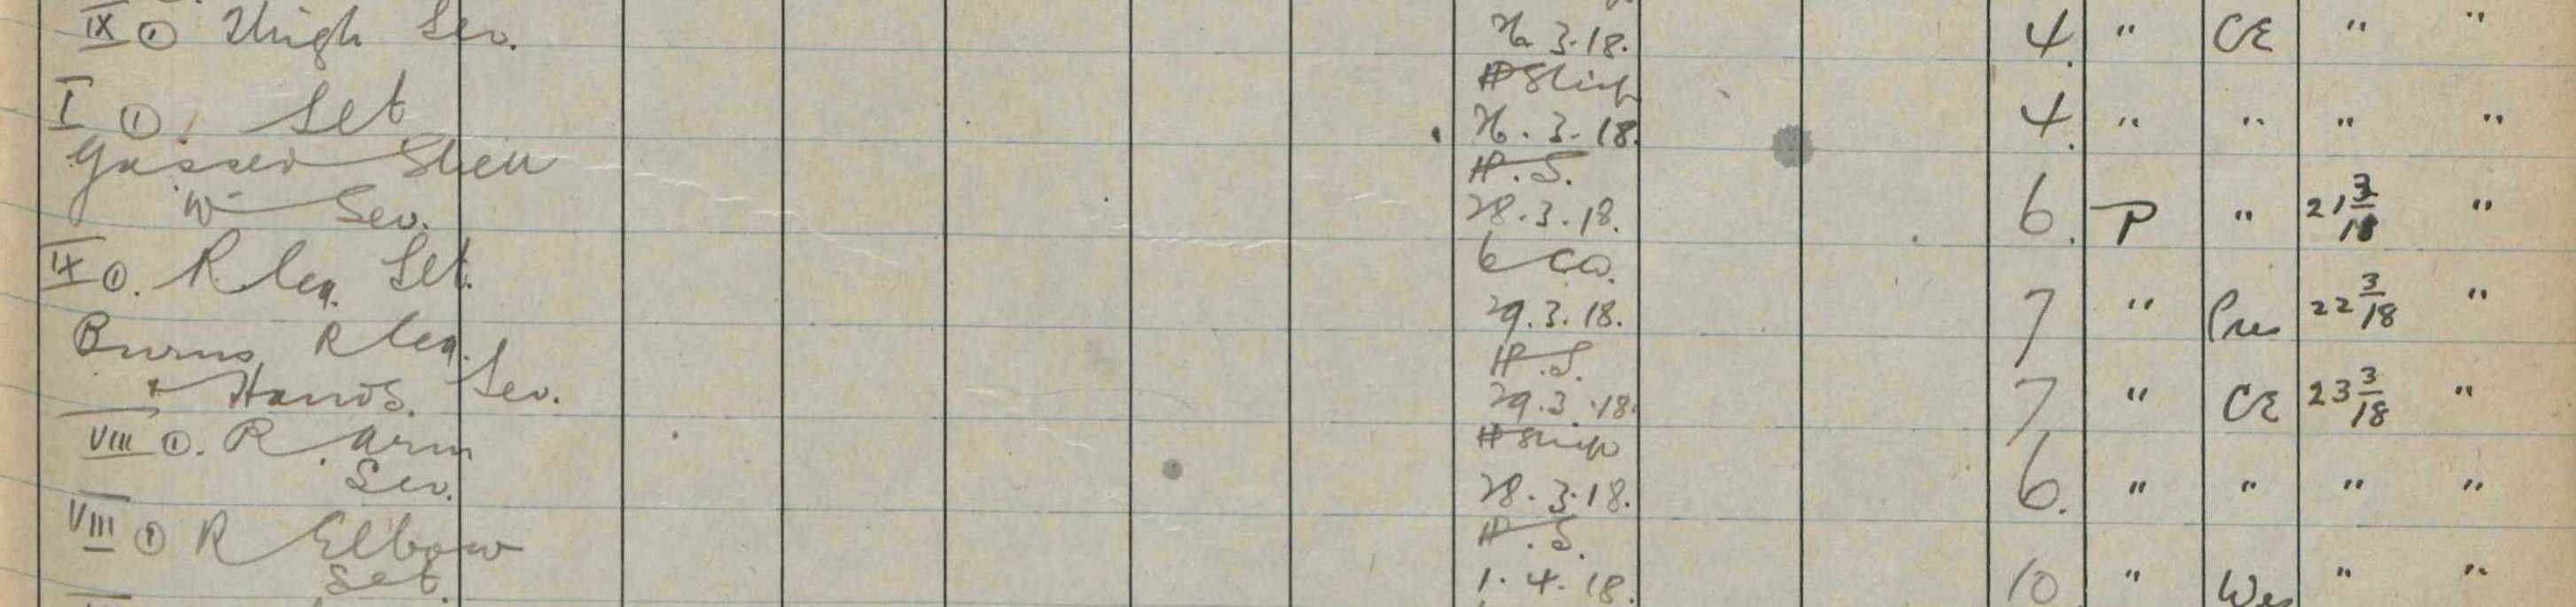 IX ① Thigh Sev. 26.3.18. 4. " CE " "
H Ship
I ① Slt 26.3.18. 4. " " " "
Gassed Shell H.S.
W Sev. 28.3.18. 6. P " 21 3/18 "
6 CD.
IX ①. R leg. Slt. 29.3.18. 7 " Pres 22 3/18 "
Burns R leg. H.S.
+ Hands. Sev. 29.3.18. 7 " CE 23 3/18 "
VIII ①. R. arm H Ship
Sev. 28.3.18. 6. " " " "
VIII ① R Elbow H.S.
Slt. 1.4.18. 10 " Wes " "